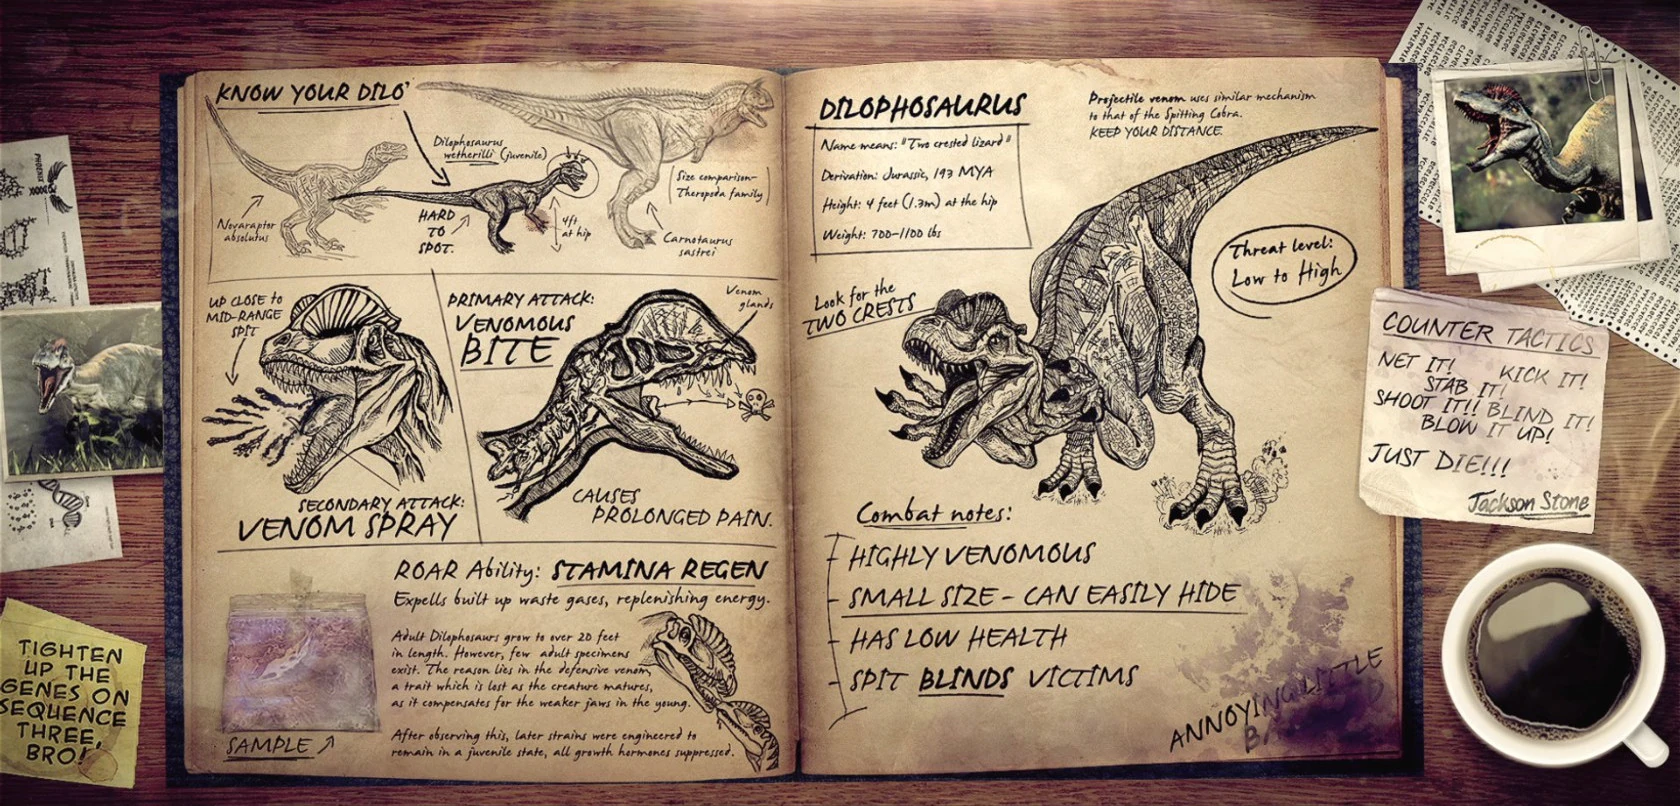 KNOW YOUR DILO'
Dilophosaurus
wetherilli (juvenile)
Novaraptor
absolutus
HARD
TO
SPOT.
4ft
at hip
Size comparison-
Theropoda family
Carnotaurus
sastrei
UP CLOSE to
MID-RANGE
SPIT
SECONDARY ATTACK:
VENOM SPRAY
PRIMARY ATTACK:
VENOMOUS
BITE
Venom
glands
CAUSES
PROLONGED PAIN.
ROAR Ability: STAMINA REGEN
Expells built up waste gases, replenishing energy.
Adult Dilophosaurs grow to over 20 feet
in length. However, few adult specimens
exist. The reason lies in the defensive venom,
a trait which is lost as the creature matures,
as it compensates for the weaker jaws in the young.
After observing this, later strains were engineered to
remain in a juvenile state, all growth hormones suppressed.
SAMPLE
DILOPHOSAURUS
Name means: "Two crested lizard"
Derivation: Jurassic, 193 MYA
Height: 4 feet (1.3m) at the hip
Weight: 700-1100 lbs
Projectile venom uses similar mechanism
to that of the Spitting Cobra.
KEEP YOUR DISTANCE.
Threat level:
Low to High
Look for the
TWO CRESTS
Combat notes:
HIGHLY VENOMOUS
SMALL SIZE - CAN EASILY HIDE
HAS LOW HEALTH
SPIT BLINDS VICTIMS
ANNOYING LITTLE
COUNTER TACTICS
NET IT! KICK IT!
STAB IT!
SHOOT IT!! BLIND IT!
BLOW IT UP!
JUST DIE!!!
Jackson Stone
TIGHTEN
UP THE
GENES ON
SEQUENCE
THREE,
BRO!